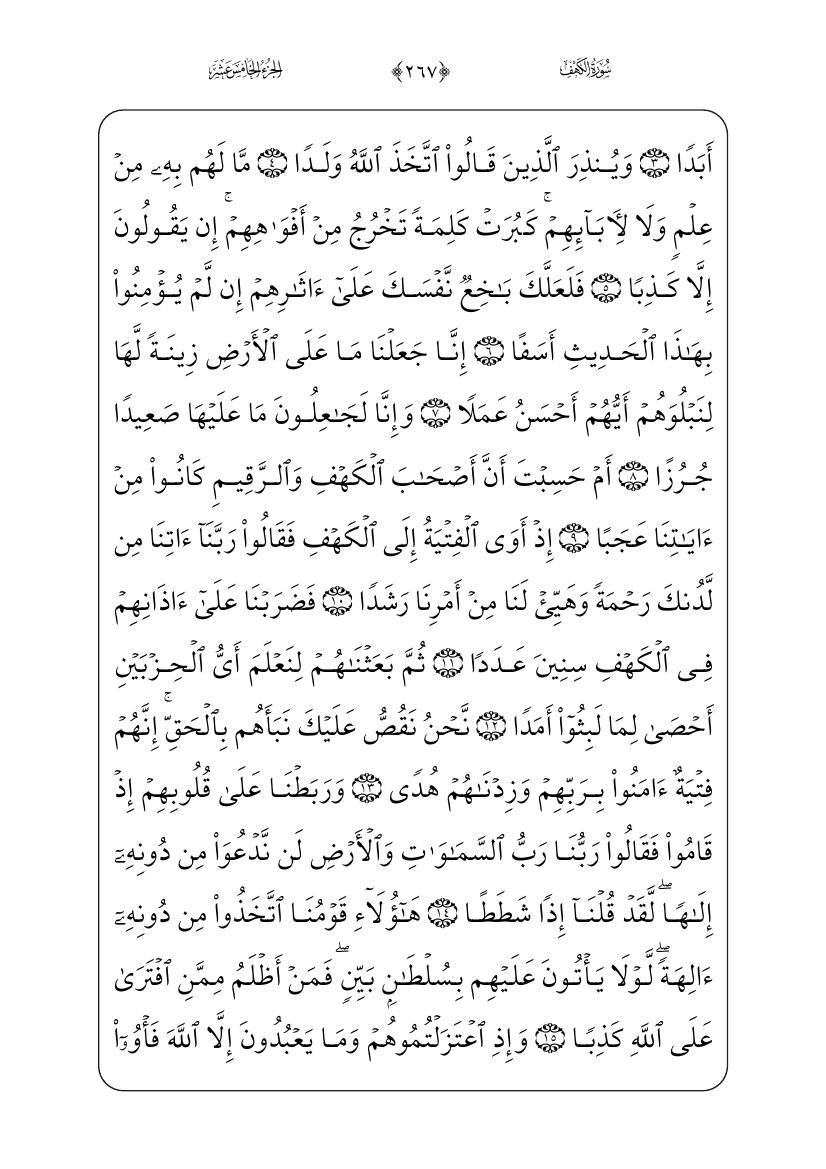 سُورَةُ الكَهْفِ ﴿٢٦٧﴾ الجُزْءُ الخَامِسَ عَشَرَ
أَبَدٗا ٣ وَيُنذِرَ ٱلَّذِينَ قَالُواْ ٱتَّخَذَ ٱللَّهُ وَلَدٗا ٤ مَّا لَهُم بِهِۦ مِنۡ
عِلۡمٖ وَلَا لِأٓبَآئِهِمۡۚ كَبُرَتۡ كَلِمَةٗ تَخۡرُجُ مِنۡ أَفۡوَٰهِهِمۡۚ إِن يَقُولُونَ
إِلَّا كَذِبٗا ٥ فَلَعَلَّكَ بَٰخِعٞ نَّفۡسَكَ عَلَىٰٓ ءَاثَٰرِهِمۡ إِن لَّمۡ يُؤۡمِنُواْ
بِهَٰذَا ٱلۡحَدِيثِ أَسَفًا ٦ إِنَّا جَعَلۡنَا مَا عَلَى ٱلۡأَرۡضِ زِينَةٗ لَّهَا
لِنَبۡلُوَهُمۡ أَيُّهُمۡ أَحۡسَنُ عَمَلٗا ٧ وَإِنَّا لَجَٰعِلُونَ مَا عَلَيۡهَا صَعِيدٗا
جُرُزًا ٨ أَمۡ حَسِبۡتَ أَنَّ أَصۡحَٰبَ ٱلۡكَهۡفِ وَٱلرَّقِيمِ كَانُواْ مِنۡ
ءَايَٰتِنَا عَجَبًا ٩ إِذۡ أَوَى ٱلۡفِتۡيَةُ إِلَى ٱلۡكَهۡفِ فَقَالُواْ رَبَّنَآ ءَاتِنَا مِن
لَّدُنكَ رَحۡمَةٗ وَهَيِّئۡ لَنَا مِنۡ أَمۡرِنَا رَشَدٗا ١٠ فَضَرَبۡنَا عَلَىٰٓ ءَاذَانِهِمۡ
فِي ٱلۡكَهۡفِ سِنِينَ عَدَدٗا ١١ ثُمَّ بَعَثۡنَٰهُمۡ لِنَعۡلَمَ أَيُّ ٱلۡحِزۡبَيۡنِ
أَحۡصَىٰ لِمَا لَبِثُوٓاْ أَمَدٗا ١٢ نَّحۡنُ نَقُصُّ عَلَيۡكَ نَبَأَهُم بِٱلۡحَقِّۚ إِنَّهُمۡ
فِتۡيَةٌ ءَامَنُواْ بِرَبِّهِمۡ وَزِدۡنَٰهُمۡ هُدٗى ١٣ وَرَبَطۡنَا عَلَىٰ قُلُوبِهِمۡ إِذۡ
قَامُواْ فَقَالُواْ رَبُّنَا رَبُّ ٱلسَّمَٰوَٰتِ وَٱلۡأَرۡضِ لَن نَّدۡعُوَاْ مِن دُونِهِۦٓ
إِلَٰهٗاۖ لَّقَدۡ قُلۡنَآ إِذٗا شَطَطًا ١٤ هَٰٓؤُلَآءِ قَوۡمُنَا ٱتَّخَذُواْ مِن دُونِهِۦٓ
ءَالِهَةٗۖ لَّوۡلَا يَأۡتُونَ عَلَيۡهِم بِسُلۡطَٰنِۭ بَيِّنٖۖ فَمَنۡ أَظۡلَمُ مِمَّنِ ٱفۡتَرَىٰ
عَلَى ٱللَّهِ كَذِبٗا ١٥ وَإِذِ ٱعۡتَزَلۡتُمُوهُمۡ وَمَا يَعۡبُدُونَ إِلَّا ٱللَّهَ فَأۡوُۥٓاْ